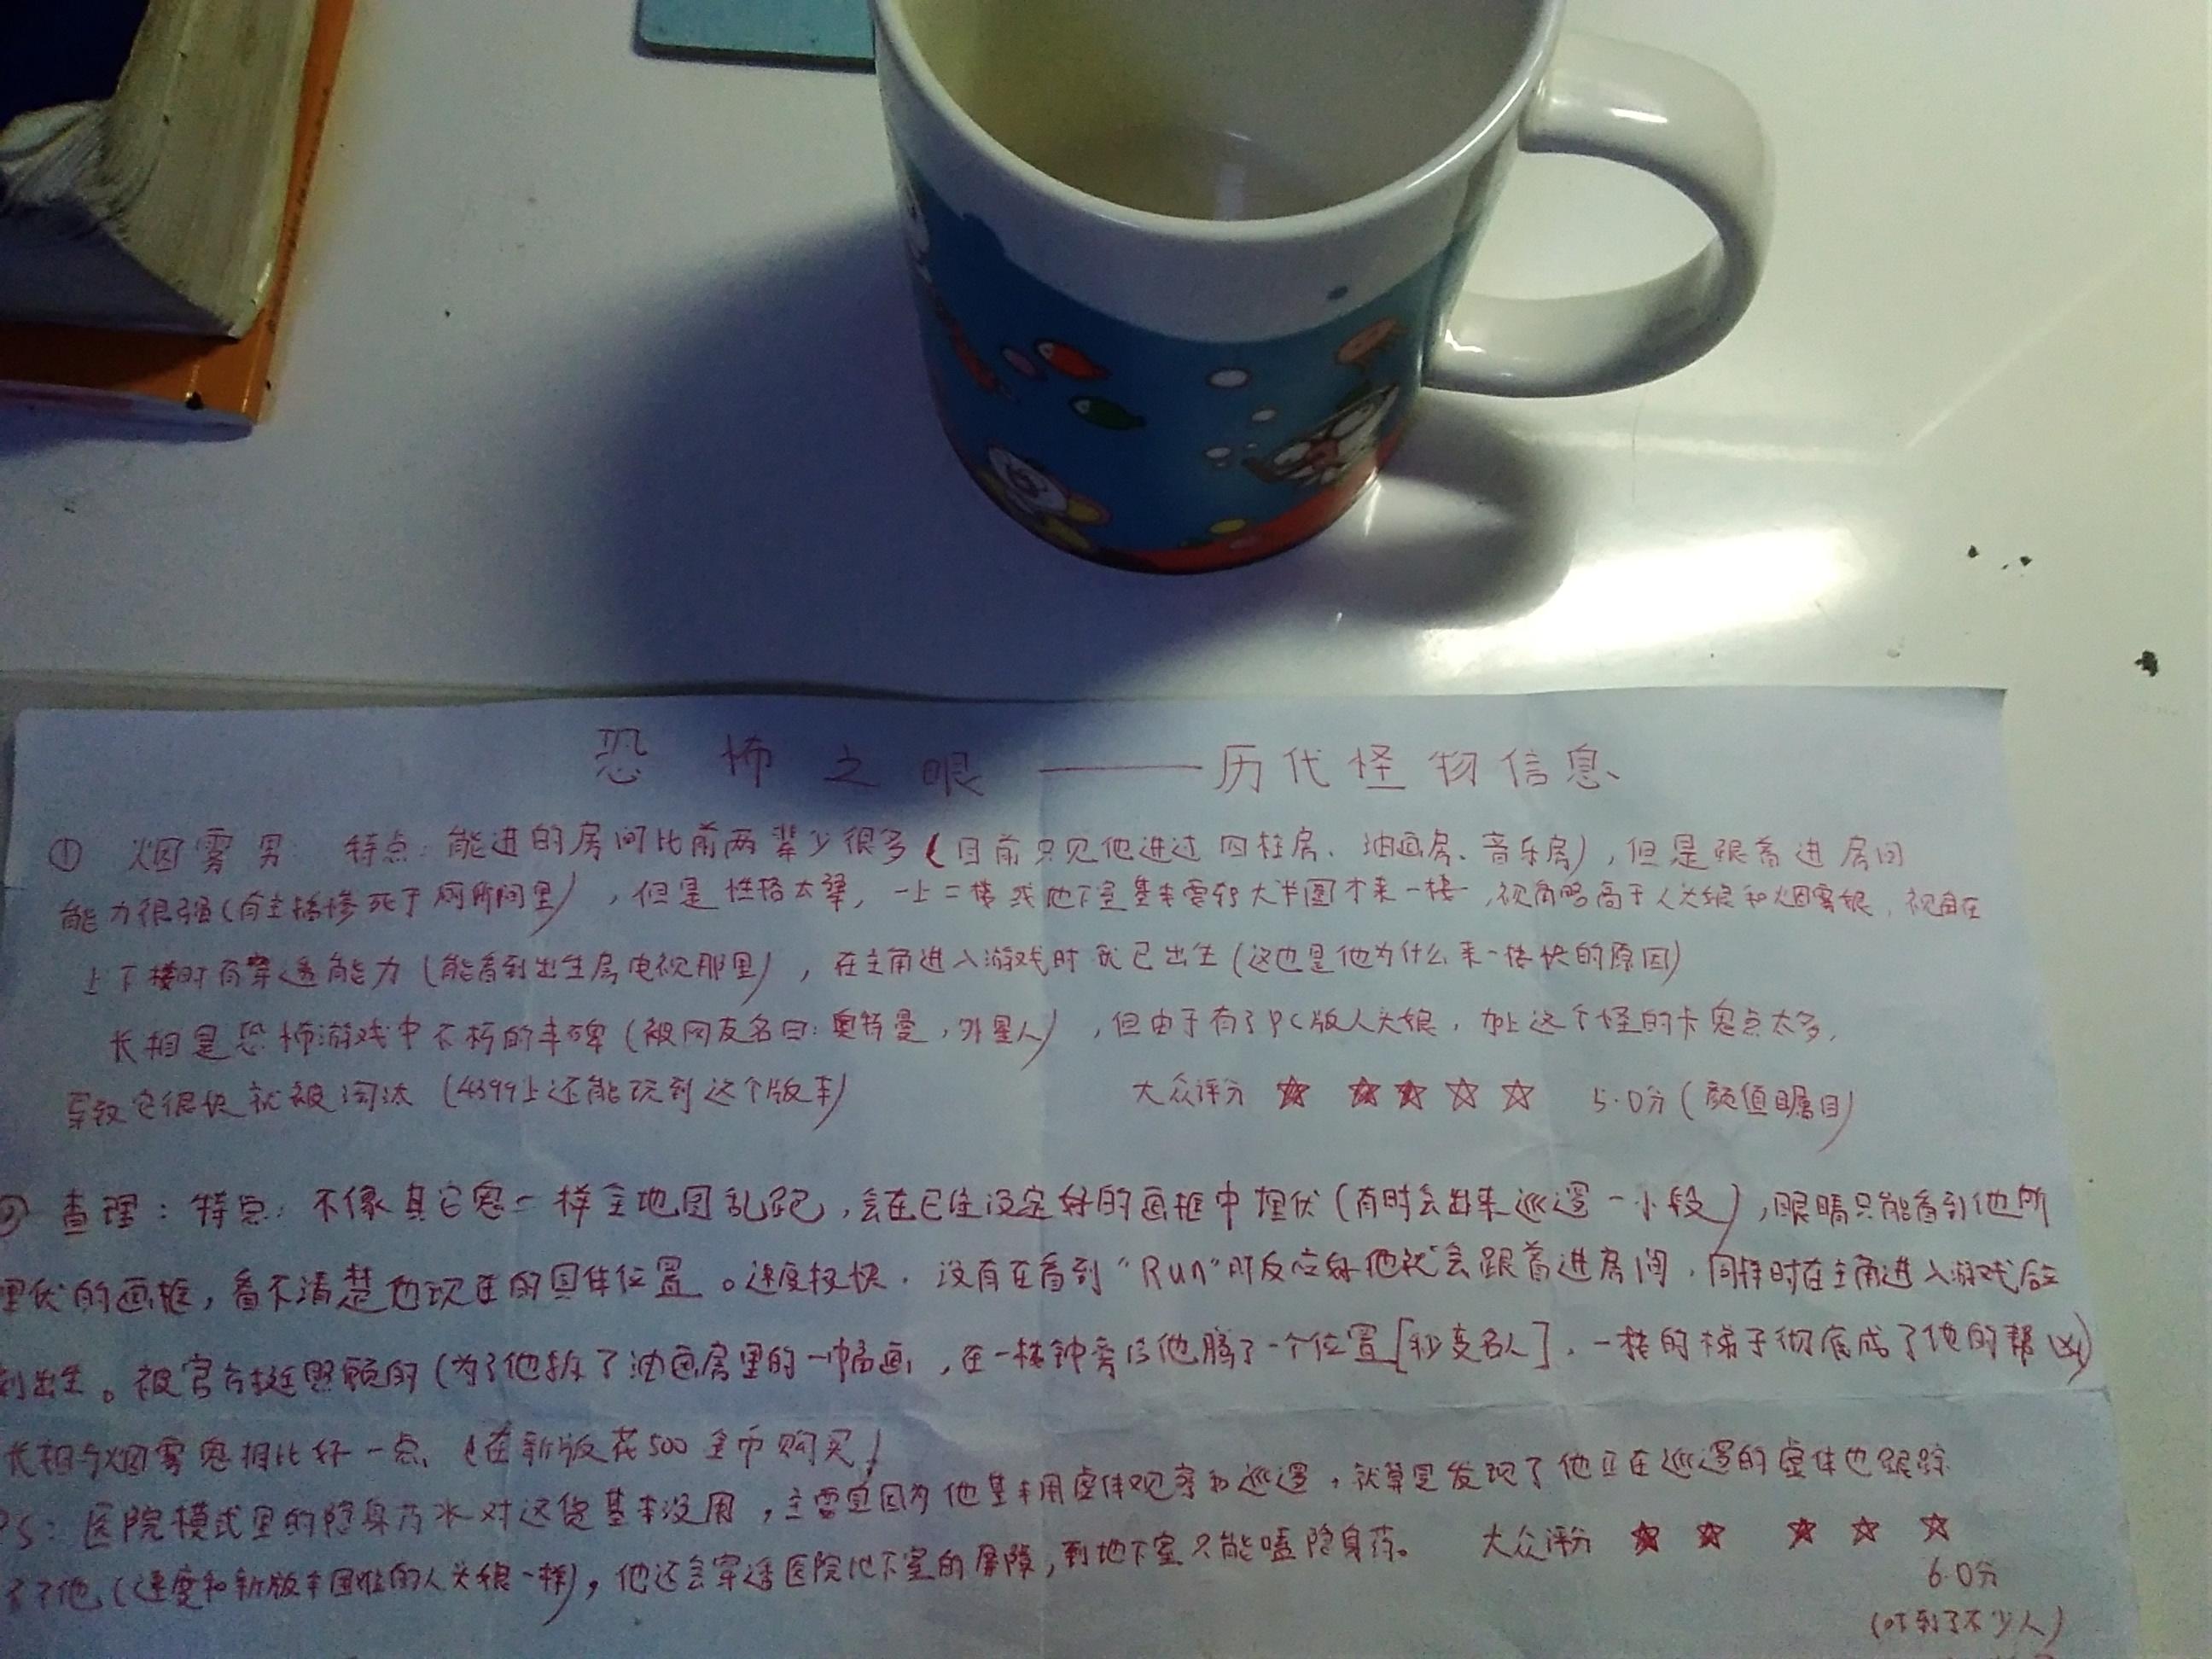 恐怖之眼——历代怪物信息
① 烟雾男 特点:能进的房间比前两辈少很多(目前只见他进过四柱房、油画房、音乐房),但是跟着进房间
能力很强(有主播惨死于厕所间里),但是性格太犟,一上二楼或地下室基本要转大半圈才来一楼,视角略高于人头娘和烟雾娘,视角在
上下楼时有穿透能力(能看到出生房电视那里),在主角进入游戏时就已出生(这也是他为什么来一楼快的原因)
长相是恐怖游戏中不朽的丰碑(被网友名曰:奥特曼,外星人),但由于有了PC版人头娘,加上这个怪的卡鬼点太多,
导致它很快就被淘汰(4399上还能玩到这个版本) 大众评分 ☆ ☆ ☆ ☆ ☆ 5.0分(颜值瞩目)
② 查理:特点:不像其它鬼一样全地图乱跑,会在已经设定好的画框中埋伏(有时会出来巡逻一小段),眼睛只能看到他所
埋伏的画框,看不清楚他现在的具体位置。速度极快,没有在看到"Run"时反应好他就会跟着进房间,同样时在主角进入游戏后立
刻出生。被官方挺照顾的(为了他拆了油画房里的一幅画,在一楼钟旁给他腾了一个位置[秒变名人],一楼的梯子彻底成了他的帮凶)
长相与烟雾鬼相比好一点,(在新版花500金币购买)
PS:医院模式里的隐身药水对这货基本没用,主要是因为他基本用虚体观察和巡逻,就算是发现了他正在巡逻的虚体也跟踪
不了他(速度和新版本困难的人头娘一样),他还会穿透医院地下室的屏障,到地下室只能嗑隐身药。 大众评分 ★ ★ ★ ☆ ☆
6.0分
(吓到了不少人)